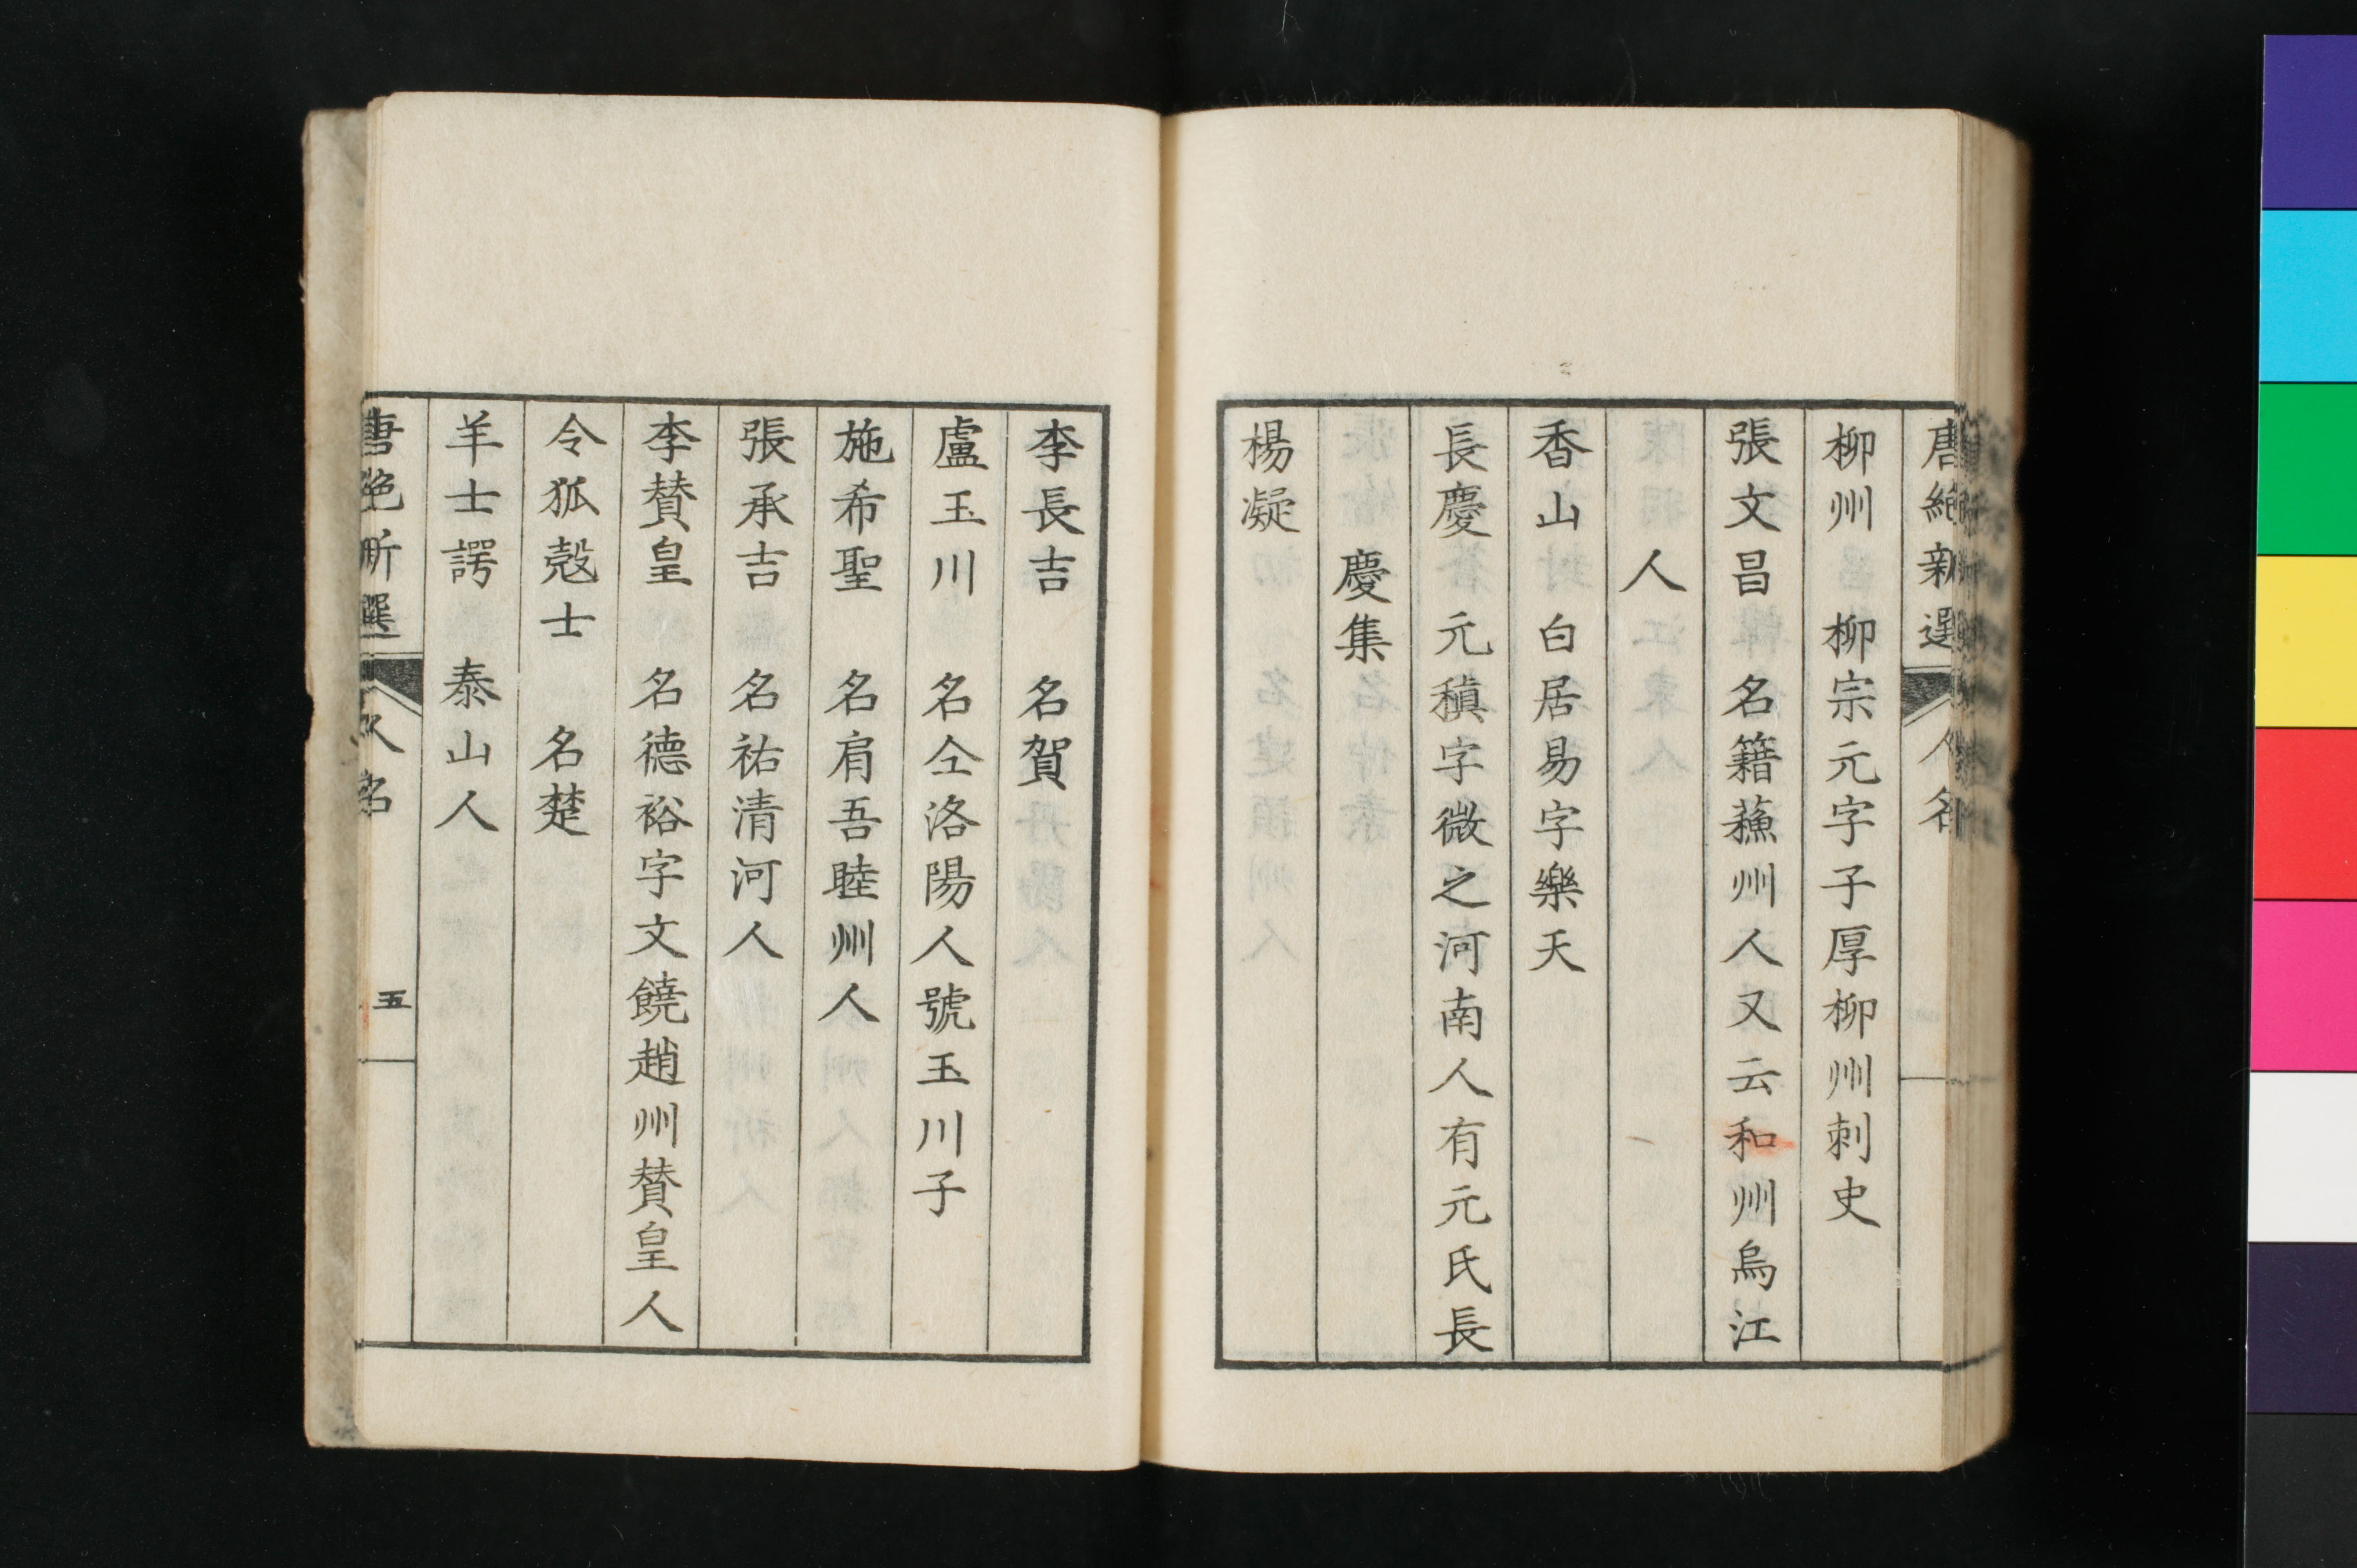 唐絶新選 人名
柳州 柳宗元字子厚柳州刺史
張文昌 名籍蘓州人又云和州烏江
人
香山 白居易字樂天
長慶 元稹字微之河南人有元氏長
慶集
楊凝
李長吉 名賀
盧玉川 名仝洛陽人號玉川子
施希聖 名肩吾睦州人
張承吉 名祐清河人
李賛皇 名德裕字文饒趙州賛皇人
令狐殼士 名楚
羊士諤 泰山人
唐絶新選 人名 五